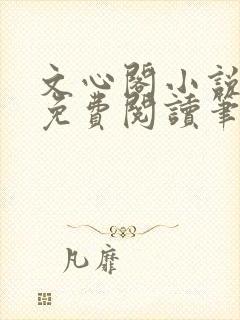 文心閣小說
免費閱讀筆
凡靡